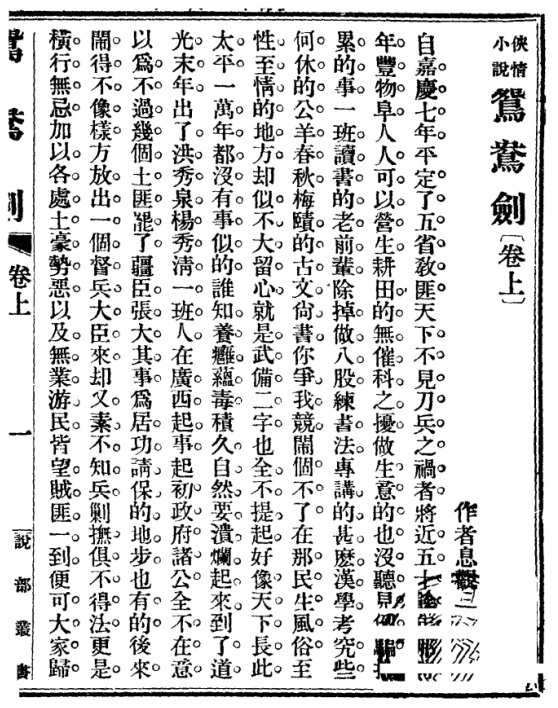 俠情小說 鴛鴦劍〔卷上〕
作者息觀
自嘉慶七年平定了五省敎匪天下不見刀兵之禍者將近五十
年豐物阜人人可以營生耕田的無催科之擾做生意的也沒聽見
累的事一班讀書的老前輩除掉做八股練書法專講的甚麽漢學考究些
何休的公羊春秋梅賾的古文尙書你爭我競鬧個不了在那民生風俗至
性至情的地方却似不大留心就是武備二字也全不提起好像天下長此
太平一萬年都沒有事似的誰知養癰蘊毒積久自然要潰爛起來到了道
光末年出了洪秀泉楊秀淸一班人在廣西起事起初政府諸公全不在意
以爲不過幾個土匪罷了疆臣張大其事爲居功請保的地步也有的後來
鬧得不像樣方放出一個督兵大臣來却又素不知兵剿撫俱不得法更是
橫行無忌加以各處土豪勢惡以及無業游民皆望賊匪一到便可大家歸
鴛鴦劍 卷上 一 說部叢書